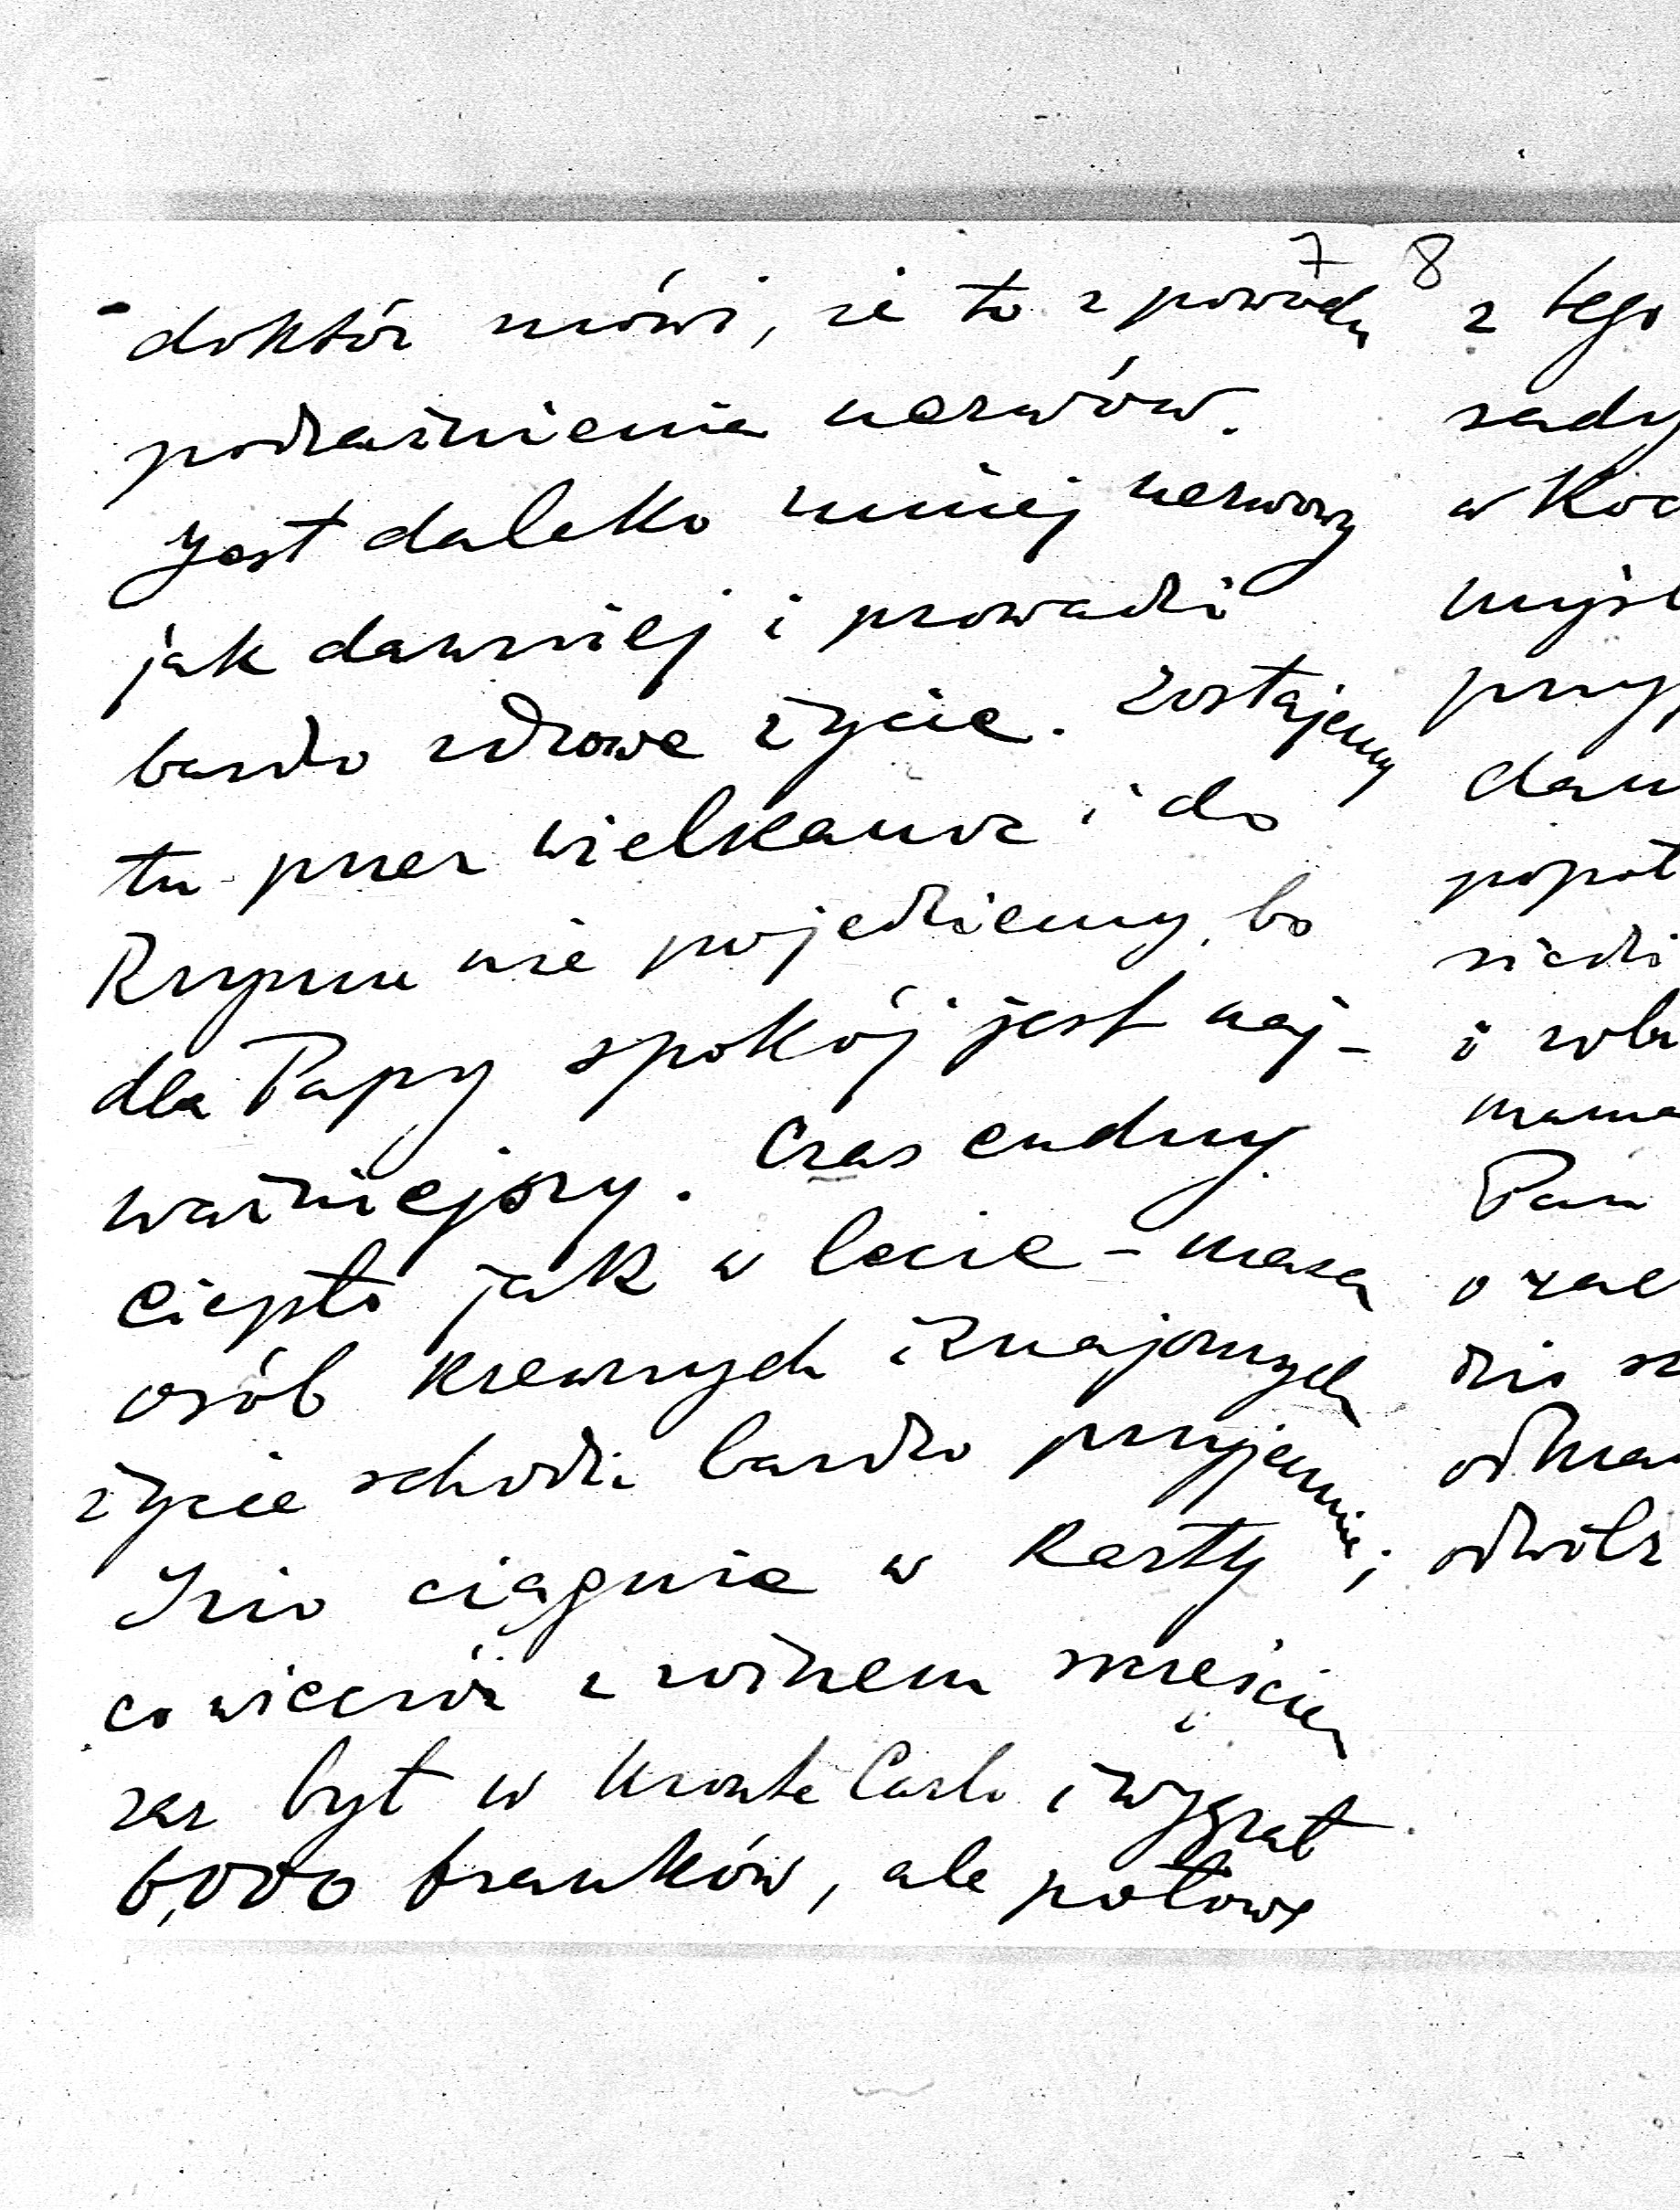 7
doktór mówi, że to z powodu
podrażnienia nerwów.
Jest daleko mniej nerwowy
jak dawniej i prowadzi
bardzo zdrowe życie. Zostajemy
tu przez wielkanoc i do
Rzymu nie pojedziemy, bo
dla Papy spokój jest naj-
ważniejszy. Czas cudny
ciepło jak w lecie - masa
osób krewnych i znajomych
życie schodzi bardzo przyjemnie;
Izio ciągnie w Karty
co wieczór z różnem szczęściem
raz był w Monte Carlo i wygrał
6,000 franków, ale połowę
8
z tego
w
i
Pan